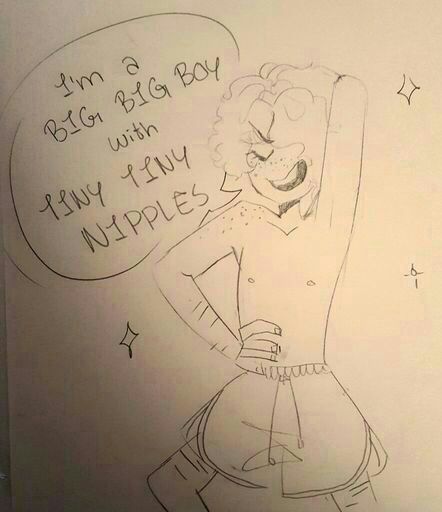 I'm a
BIG BIG BOY
with
TINY TINY
NIPPLES